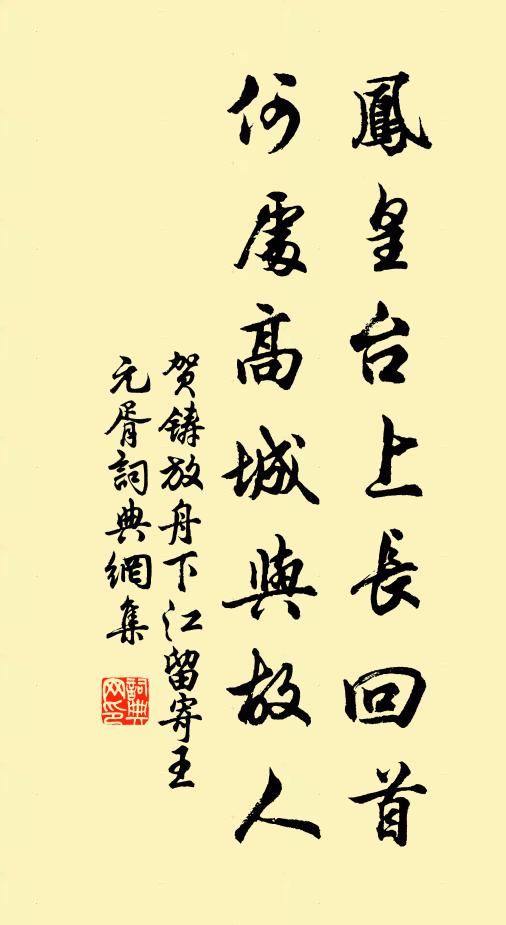 鳳皇台上長回首
何處高城與故人
贺鋳放舟下江留寄王
元胥詞典網集
詞典
网印